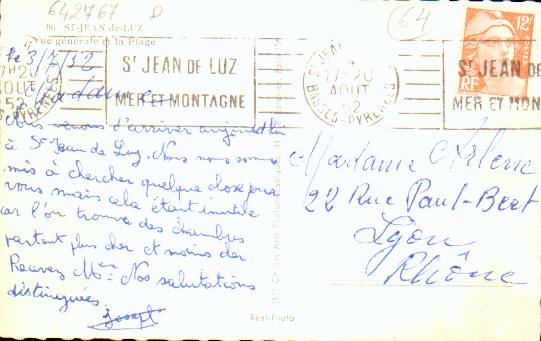 642767 D
(64)
86 ST-JEAN-de-LUZ
Vue générale et la Plage
12F
RF
ST JEAN DE LUZ
MER ET MONTAGNE
17H20
AOUT
52
BASSES-PYRENEES
ST JEAN DE
MER ET MON
le 3/ /52
Madame
Nous venons d'arriver aujourd'hui
à St Jean de Luz. Nous nous sommes
mis à chercher quelque chose pour
vous mais cela était inutile
car l'on trouve des chambres
partout plus cher et moins cher.
Recevez Mme Nos salutations
distinguées.
Joseph
Madame
22 Rue Paul-Bert
Lyon
Rhône
Réel-Photo